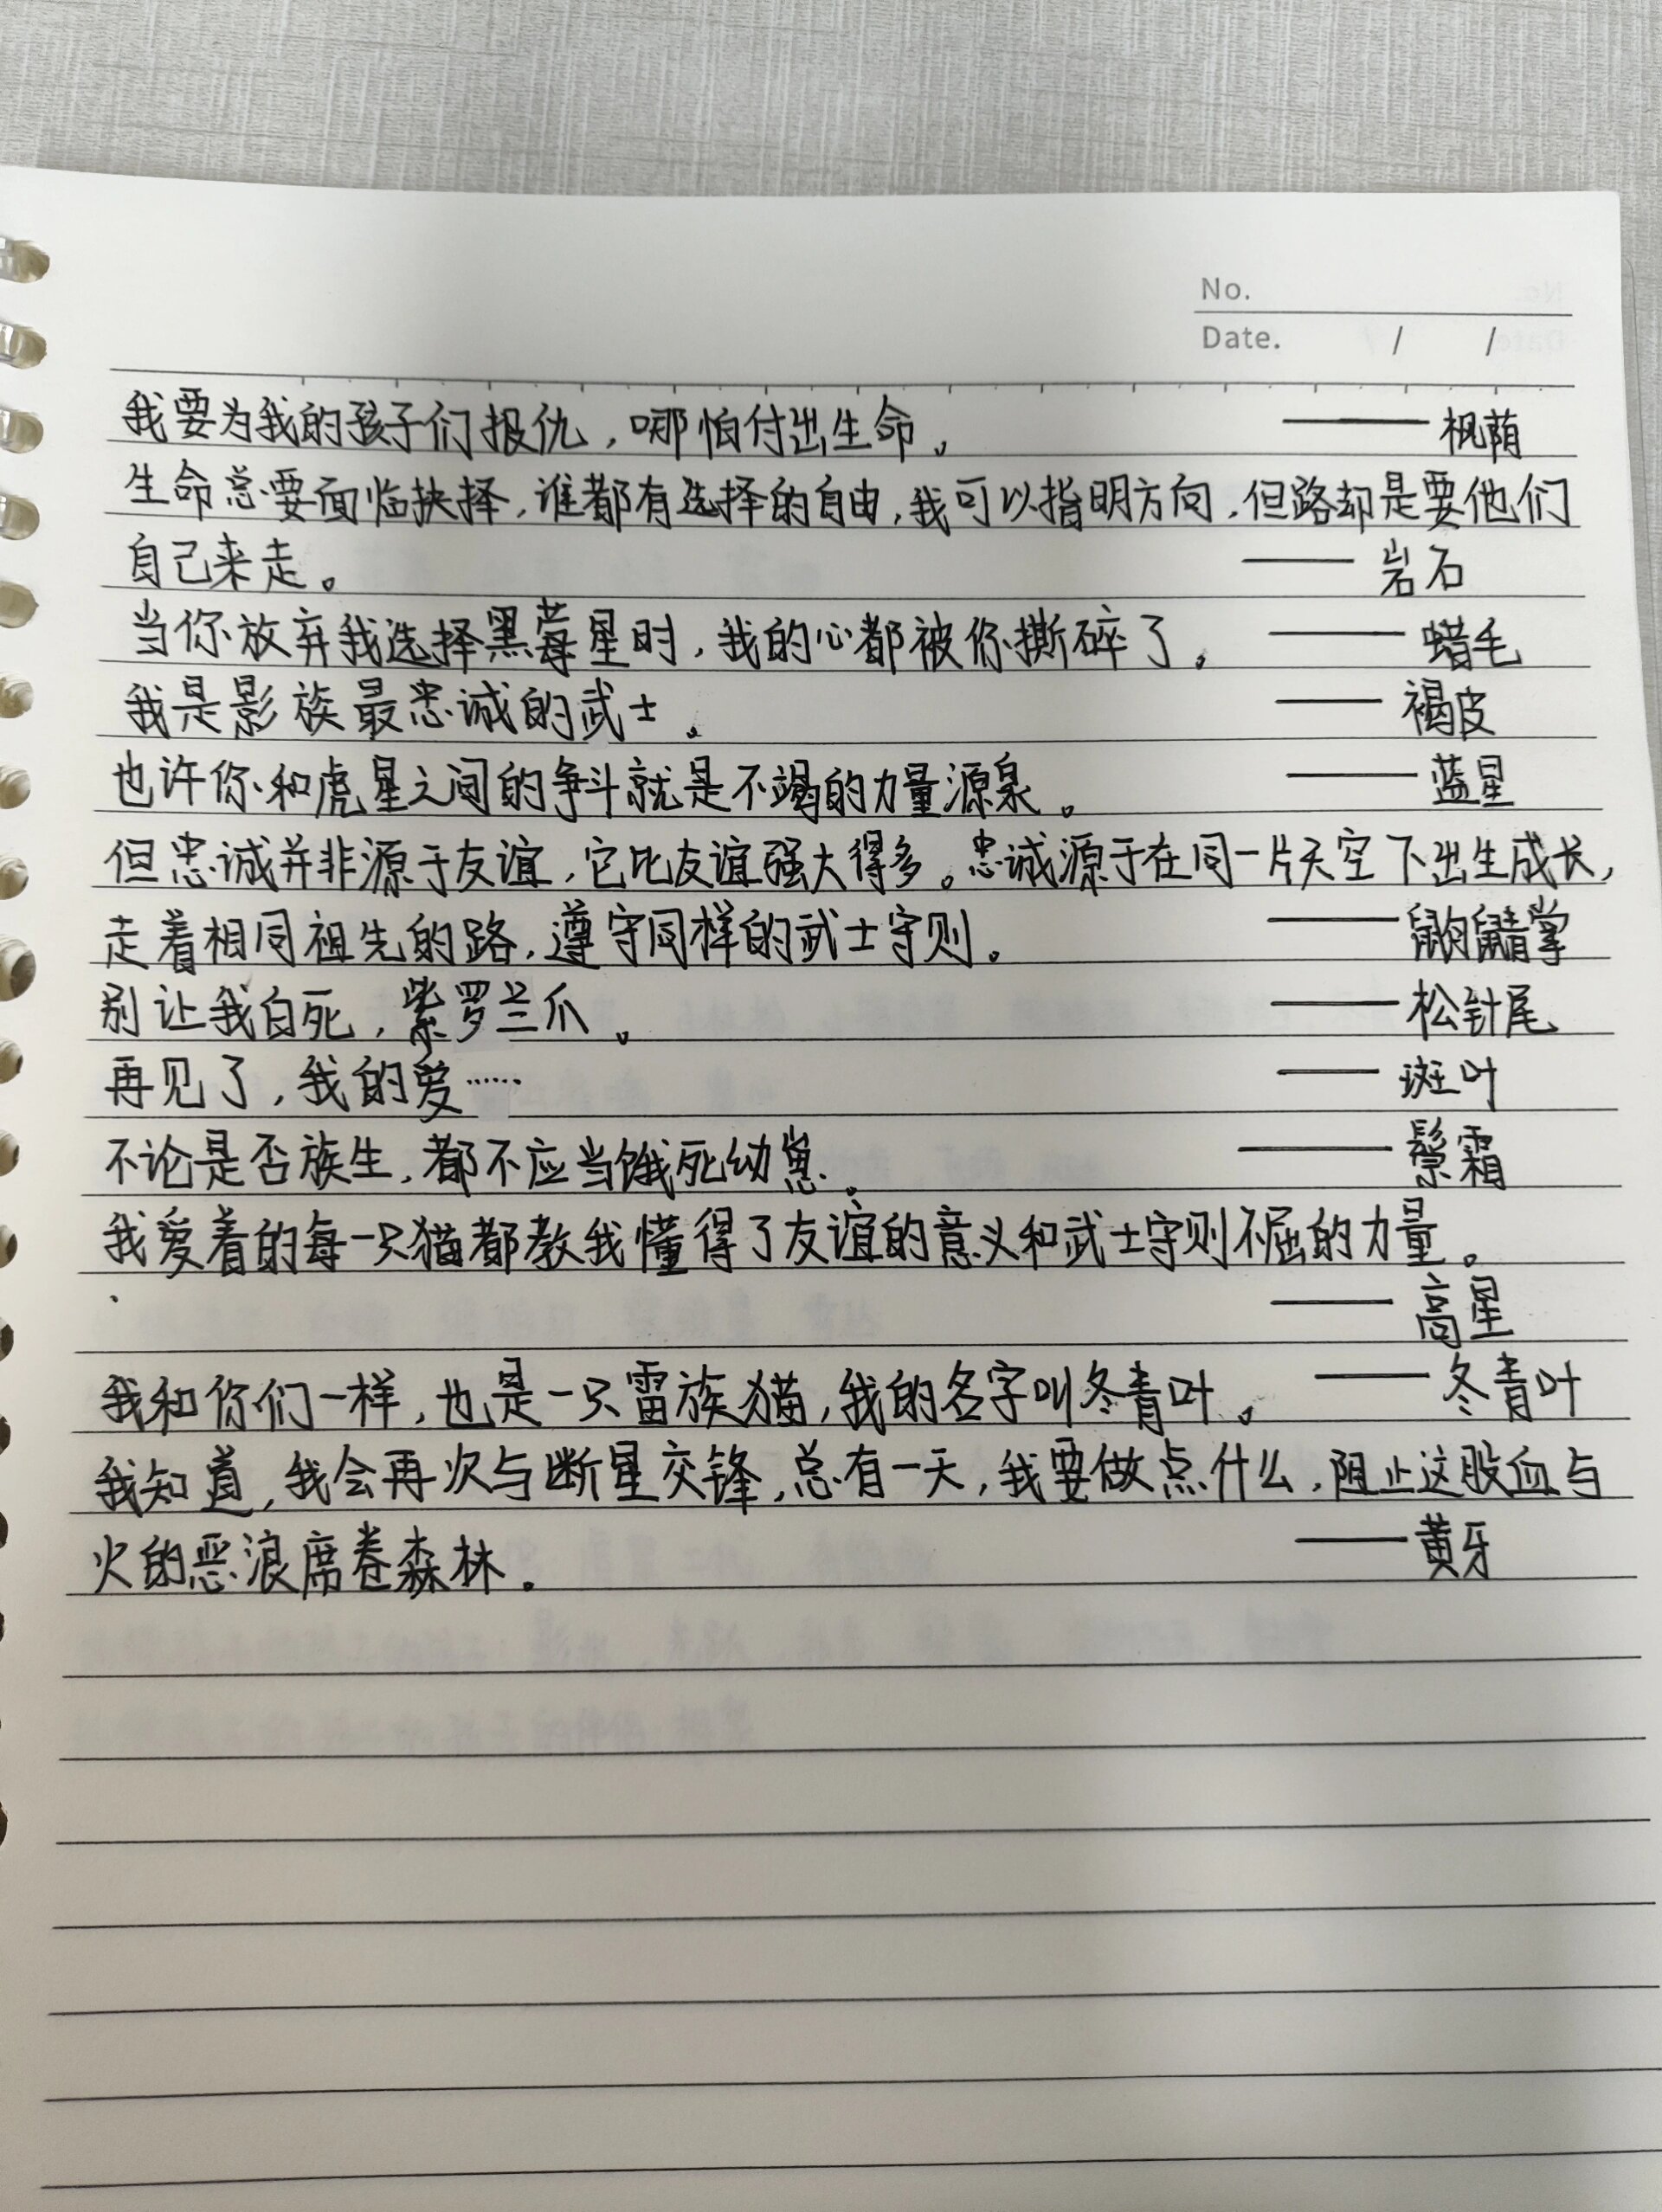 No.
Date. / /
我要为我的孩子们报仇，哪怕付出生命。 ——枫荫
生命总要面临抉择，谁都有选择的自由，我可以指明方向，但路却是要他们
自己来走。 ——岩石
当你放弃我选择黑莓星时，我的心都被你撕碎了。 ——蜡毛
我是影族最忠诚的武士。 ——褐皮
也许你和虎星之间的争斗就是不竭的力量源泉。 ——蓝星
但忠诚并非源于友谊，它比友谊强大得多。忠诚源于在同一片天空下出生成长，
走着相同祖先的路，遵守同样的武士守则。 ——鼩鼱掌
别让我白死，紫罗兰爪。 ——松针尾
再见了，我的爱…… ——斑叶
不论是否族生，都不应当饿死幼崽。 ——鬃霜
我爱着的每一只猫都教我懂得了友谊的意义和武士守则不屈的力量。
——高星
我和你们一样，也是一只雷族猫，我的名字叫冬青叶。 ——冬青叶
我知道，我会再次与断星交锋，总有一天，我要做点什么，阻止这股血与
火的恶浪席卷森林。 ——黄牙